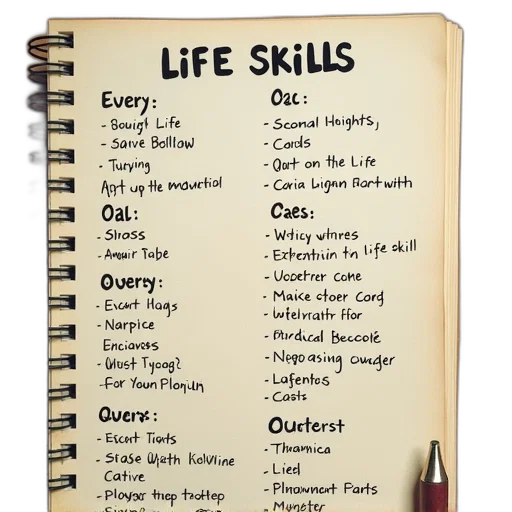 LiFE SKiLLS
Every:
- Bouigt Life
- Saive Bollow
- Turying
Apt up the movortiol
Oal:
- Shoss
- Amuir Tabe
Overty:
- Escart Hags
- Narpice
Enciavess
- Otust Tyog?
- For Youn Plonjun
Querx:
- Escort Tiorts
- Stase Qlath Kelvline
Cative
- Ployar thep tootlep
Oac:
- Sconal Hoights,
- Cords
- Qart on the Life
- Caria Lignn Bortwith
Caes:
- Wdicy whnres
- Extenitiin tn life skill
- Uooterer cone
- Maike ctoer Corg
- Wtelvrath ffor
- Burdical Beccole
- Nego asing owdger
- Lafentos
- Casts
Oucterst
- Thamnica
- Lied
- Plnownent Parts
- Mynster